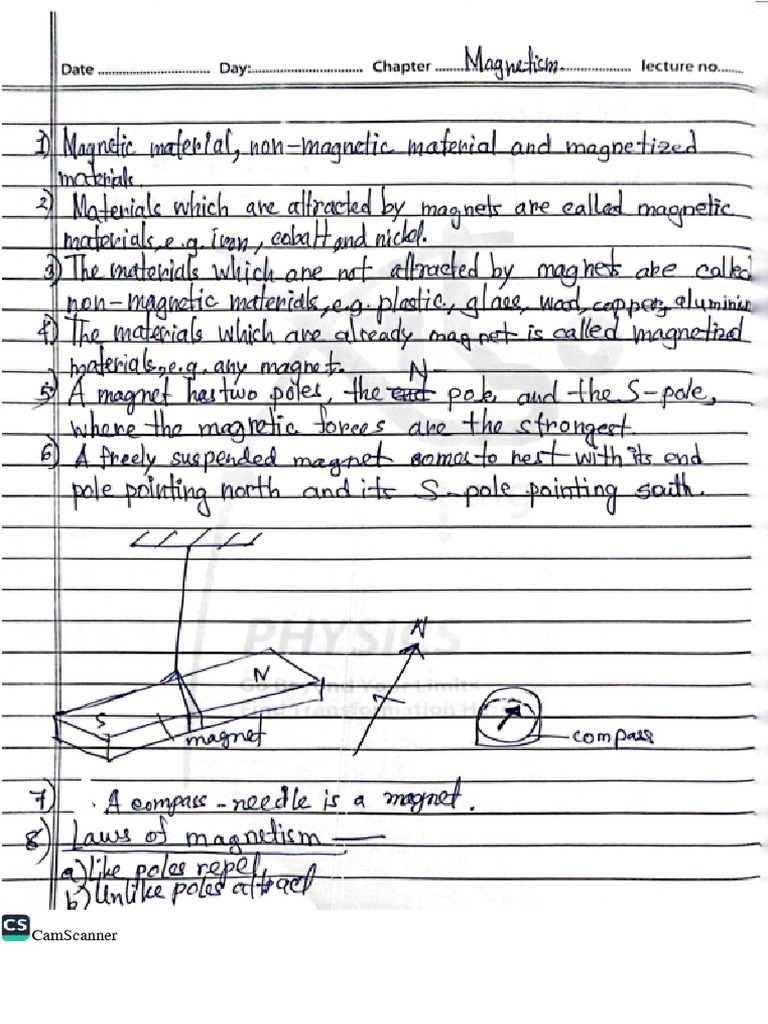 Date .............................. Day:.............................. Chapter ........Magnetism.................. lecture no.......
1) Magnetic material, non-magnetic material and magnetized
materials.
2) Materials which are attracted by magnets are called magnetic
materials, e.g. iron, cobalt, and nickel.
3) The materials which are not attracted by magnets are called
non-magnetic materials, e.g. plastic, glass, wood, copper, aluminium
4) The materials which are already magnet is called magnetized
materials, e.g. any magnet.
N
5) A magnet has two poles, the end pole, and the S-pole,
where the magnetic forces are the strongest.
6) A freely suspended magnet comes to rest with its end
pole pointing north and its S-pole pointing south.
N
PHYSICS
N
Go Beyond Your Limits
S
Find Transformation Here
magnet
compass
7) . A compass-needle is a magnet.
8) Laws of magnetism —
a) like poles repel,
b) Unlike poles attract
CS CamScanner